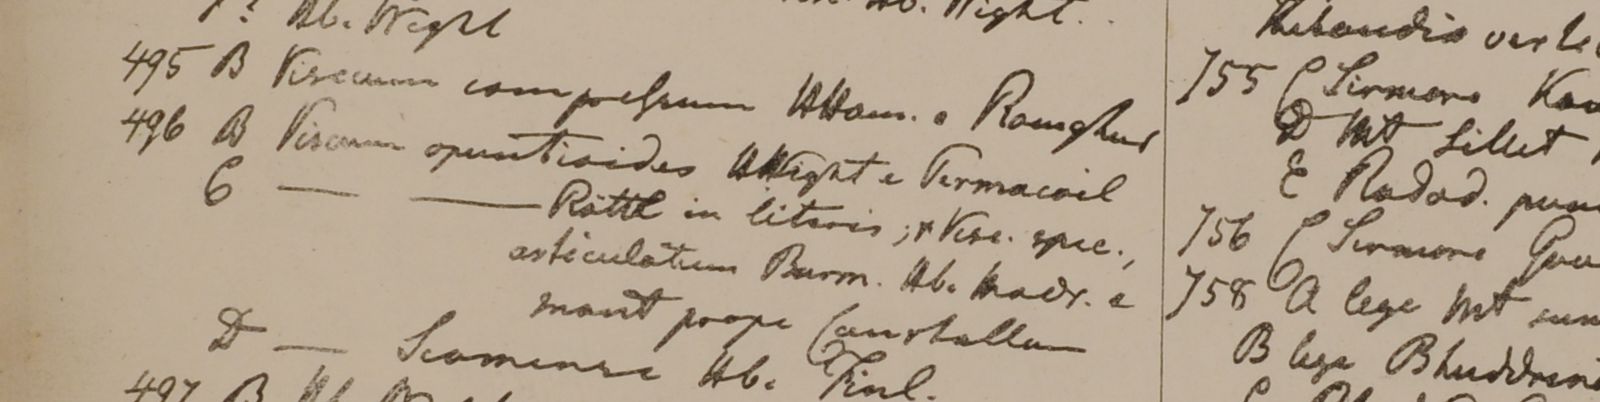 Hb. Wight Hb. Wight.
495 B Viscum compressum HHam. e Ramghur
496 B Viscum opuntioides HWight e Permacoil
C — — Röttl in literis; & Visc. spec.,
articulatum Burm. Hb. Madr. e
mont prope Courtallum
D — Siamense Hb. Finl.
497 B Hb.
Thibaudia
755 C Sirmore
D Mt Sillet
E Rodod.
756 C Sirmore
758 A lege Mt
B lege